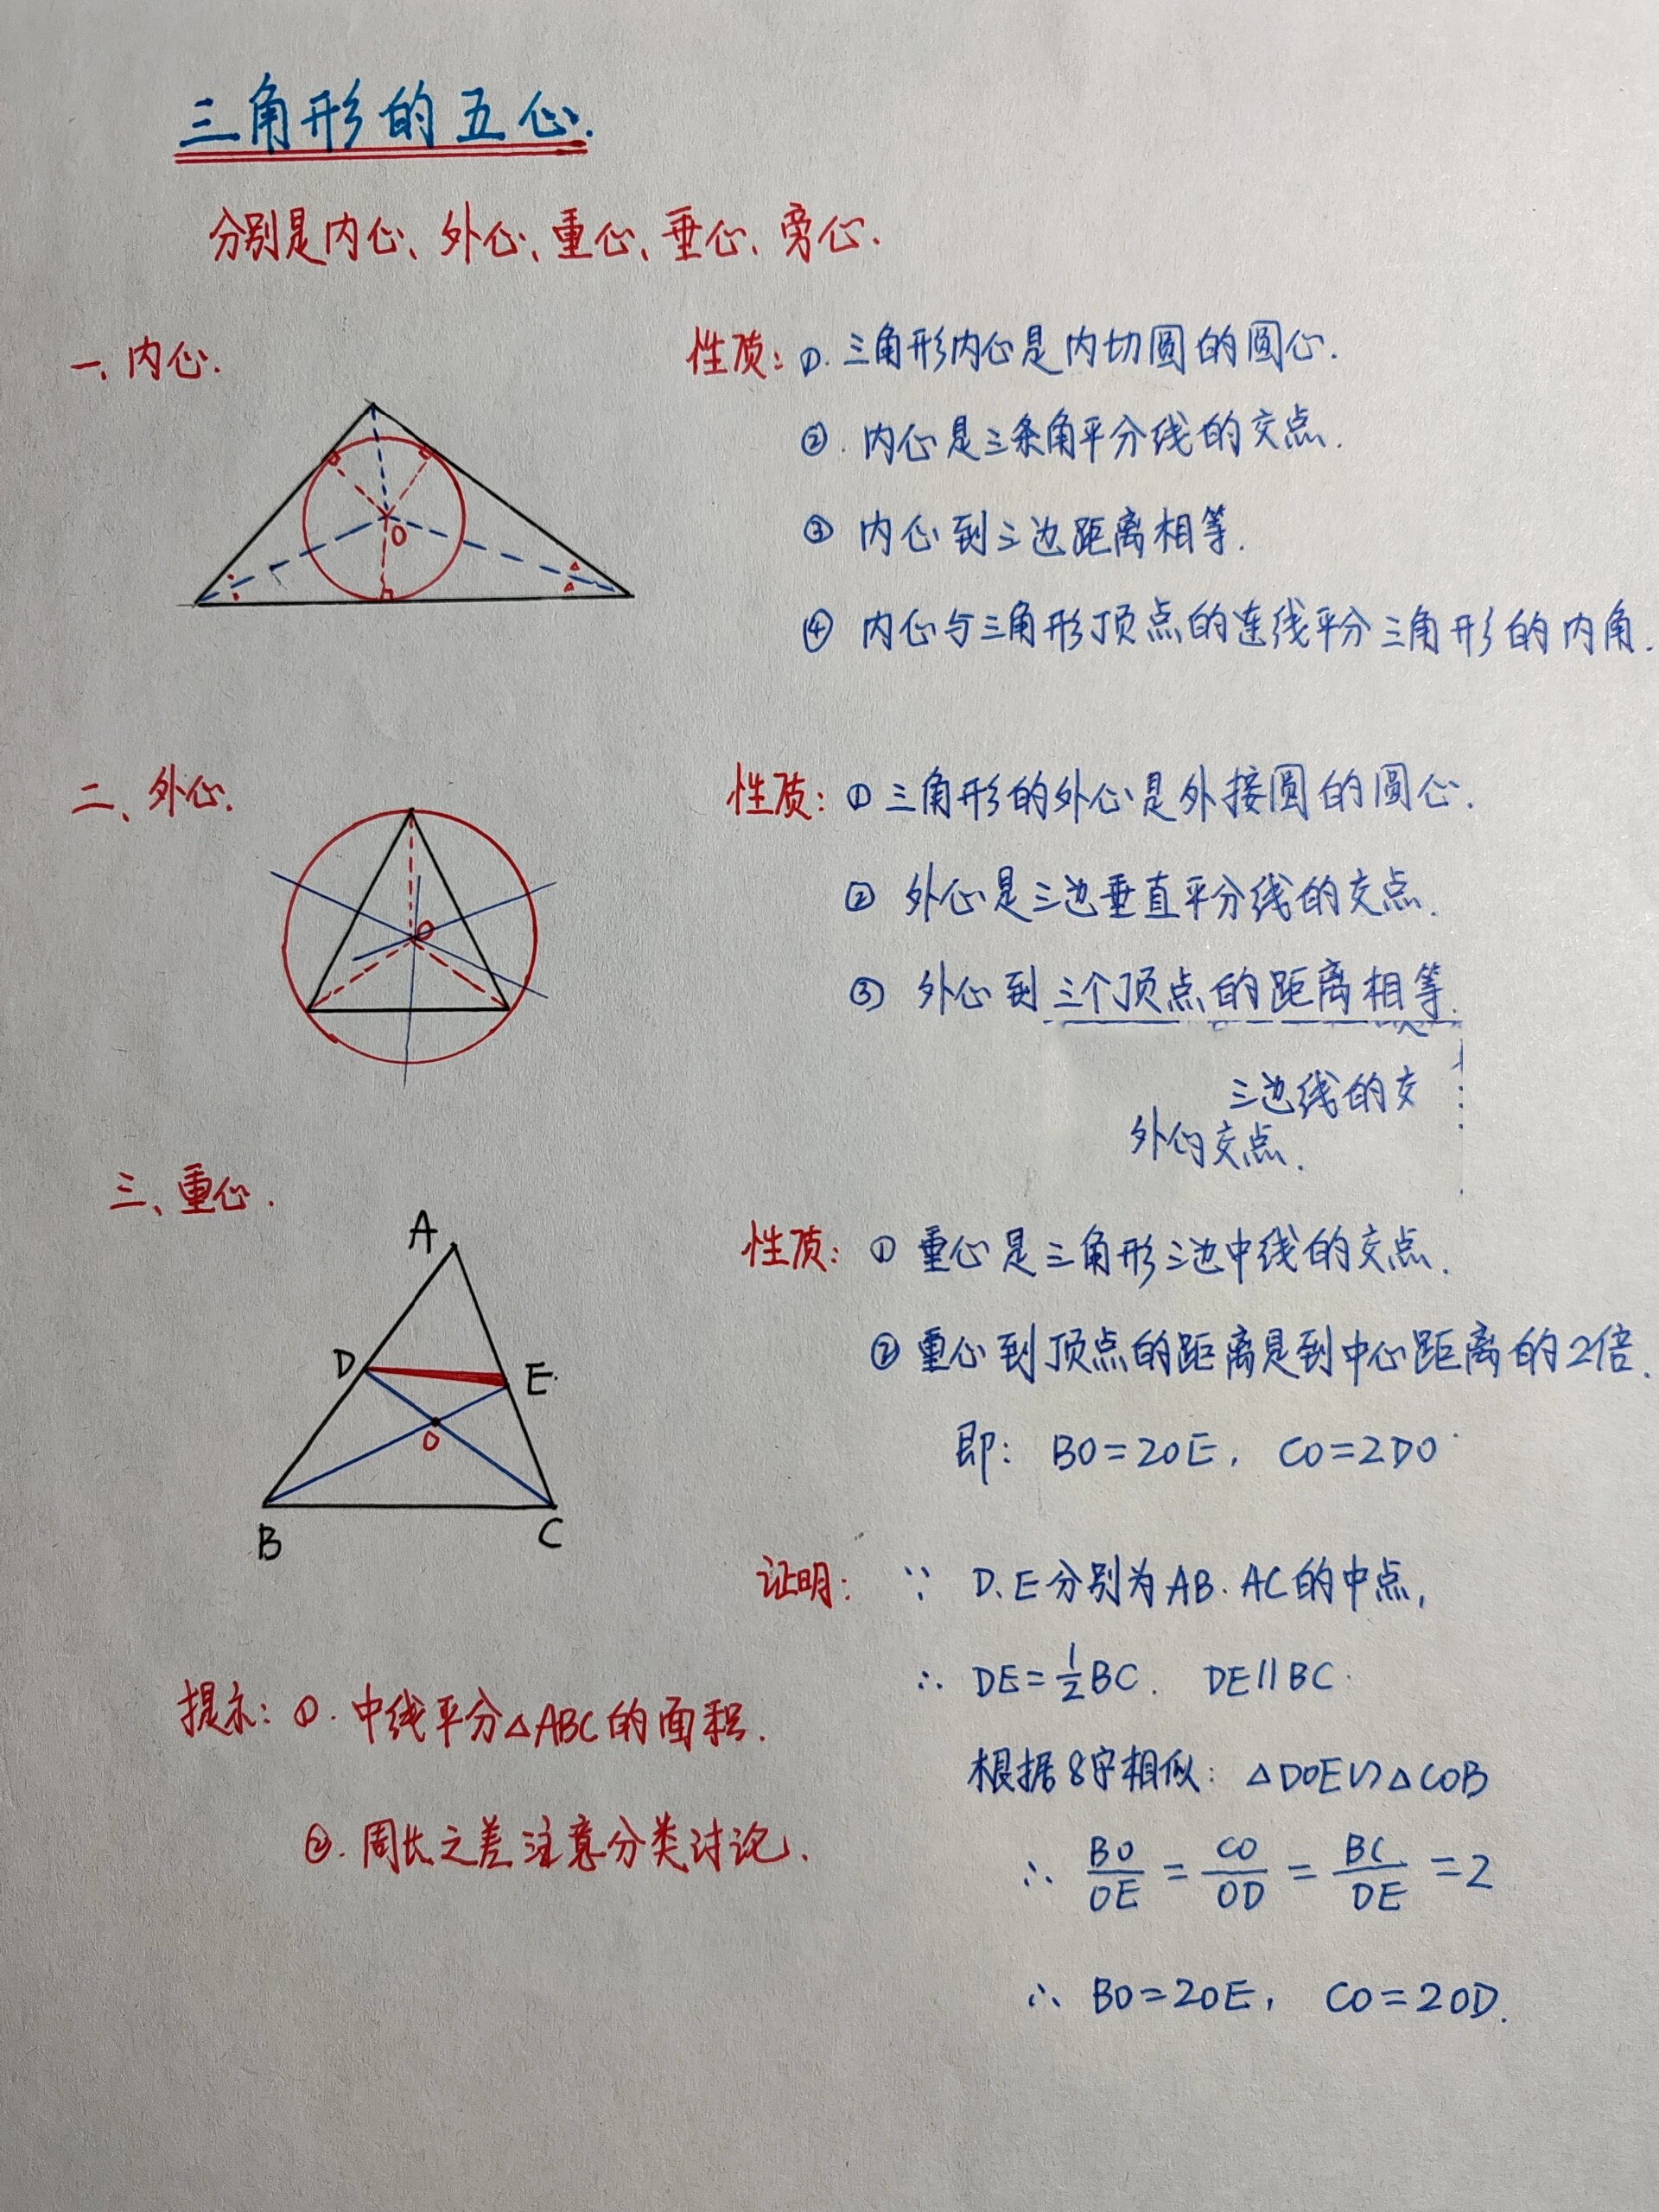 三角形的五心.
分别是内心、外心、重心、垂心、旁心.
一、内心.
性质: ①. 三角形内心是内切圆的圆心.
②. 内心是三条角平分线的交点.
③ 内心到三边距离相等.
④ 内心与三角形顶点的连线平分三角形的内角.
O
二、外心.
性质: ① 三角形的外心是外接圆的圆心.
② 外心是三边垂直平分线的交点.
③ 外心到三个顶点的距离相等.
O
三边线的交
外的交点.
三、重心.
A
D
E
O
B
C
性质: ① 重心是三角形三边中线的交点.
② 重心到顶点的距离是到中心距离的2倍.
即: BO=2OE, CO=2DO
证明: ∵ D、E分别为AB、AC的中点,
∴ DE=1/2BC. DE∥BC.
根据8字相似: △DOE∽△COB
∴ BO/OE = CO/OD = BC/DE =2
∴ BO=2OE, CO=2OD.
提示: ①. 中线平分△ABC的面积.
②. 周长之差注意分类讨论.